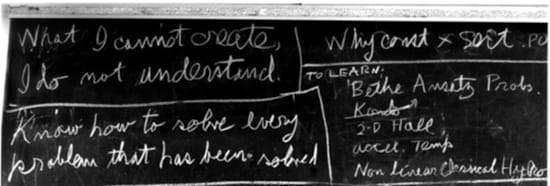 What I cannot create,
I do not understand.
Know how to solve every
problem that has been solved
Why const × sort . PO
TO LEARN:
Bethe Ansatz Probs.
Kondo
2-D Hall
accel. Temp
Non Linear Classical Hydro